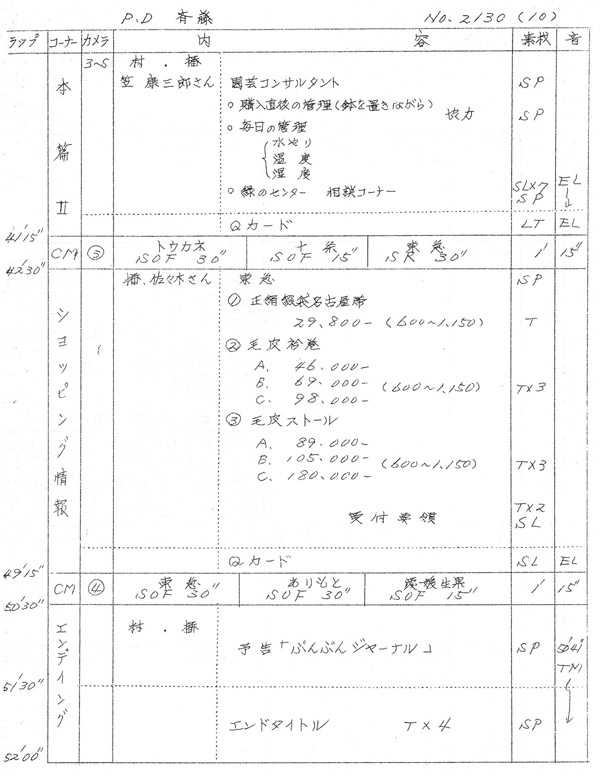 P.D 斉藤 NO. 2130 (10)
ラップ コーナー カメラ 内 容 素材 音
3〜5 村 . 播
本篇Ⅱ 笠 康三郎さん 園芸コンサルタント SP
○ 購入直後の管理(鉢を置きながら) 協力 SP
○ 毎日の管理
水やり
温度
湿度
○ 緑のセンター 相談コーナー SL×7 EL
SP
Qカード LT EL
41'15"
CM ③ トウカネ 十条 東急
SOF 30" SOF 15" SR 30" 1' 15"
42'30"
ショッピング情報 播、佐々木さん 東急 SP
① 正絹 袋名古屋帯
29.800- (600〜1.150) T
② 毛皮衿巻
A. 46.000-
B. 69.000- (600〜1.150) T×3
C. 98.000-
③ 毛皮ストール
A. 89.000-
B. 105.000- (600〜1.150) T×3
C. 180.000-
受付要領 T×2
SL
Qカード SL EL
49'15"
CM ④ 東急 ありもと 愛媛生果
SOF 30" SOF 30" SOF 15" 1' 15"
50'30"
エンディング 村 . 播
予告「ぶんぶんジャーナル」 SP 50'41"
TM
51'30"
エンドタイトル T×4 SP
52'00"